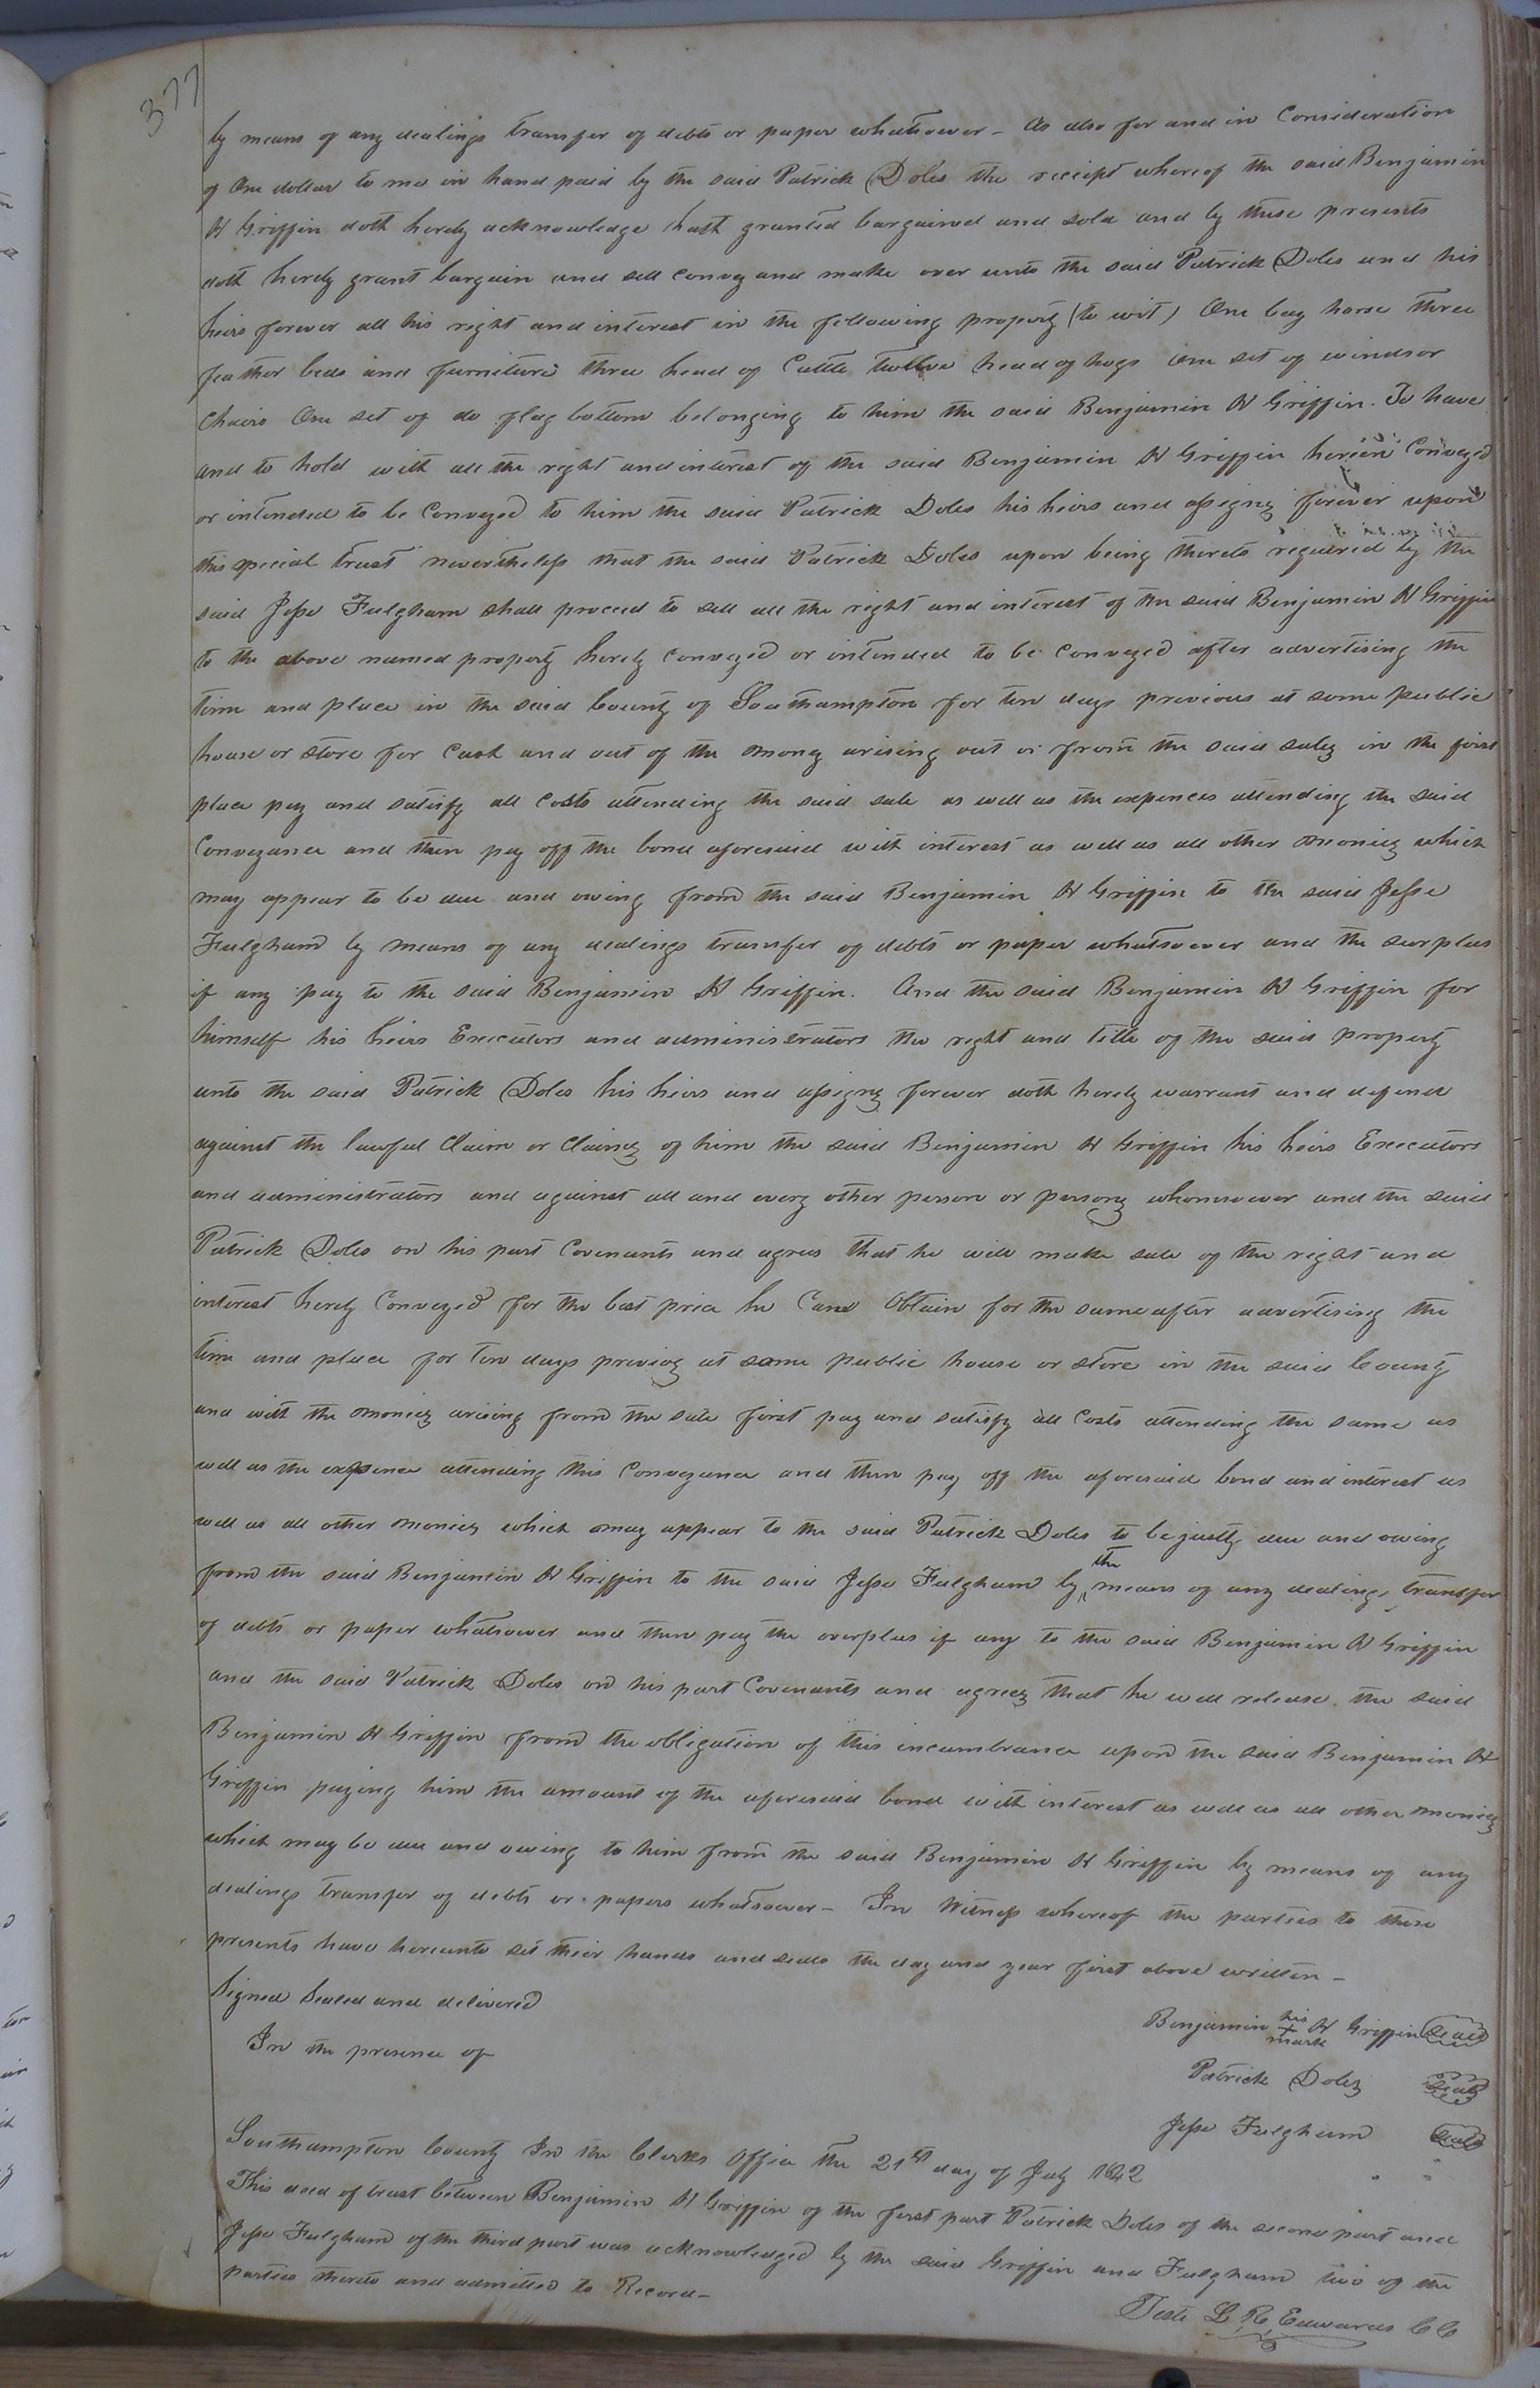 377
by means of any dealings transfer of debts or paper whatsoever - As also for and in Consideration
of One dollar to me in hand paid by the said Patrick Doles the receipt whereof the said Benjamin
H Griffin doth hereby acknowledge hath granted bargained and sold and by these presents
doth hereby grant bargain and sell convey and make over unto the said Patrick Doles and his
heirs forever all his right and interest in the following property (to wit) One bay horse three
feather beds and furniture three head of Cattle twelve head of hogs one set of windsor
Chairs One set of do flag bottom belonging to him the said Benjamin H Griffin. To have
and to hold with all the right and interest of the said Benjamin H Griffin herein Conveyed
or intended to be Conveyed to him the said Patrick Doles his heirs and assigns forever upon
this special trust nevertheless that the said Patrick Doles upon being thereto required by the
said Jesse Fulgham shall proceed to sell all the right and interest of the said Benjamin H Griffin
to the above named property hereby conveyed or intended to be Conveyed after advertising the
time and place in the said County of Southampton for ten days previous at some public
house or store for Cash and out of the money arising out or from the said sales in the first
place pay and satisfy all Costs attending the said sale as well as the expences attending the said
Conveyance and then pay off the bond aforesaid with interest as well as all other monies which
may appear to be due and owing from the said Benjamin H Griffin to the said Jesse
Fulgham by means of any dealings transfer of debts or paper whatsoever and the surplus
if any pay to the said Benjamin H Griffin. And the said Benjamin H Griffin for
himself his heirs Executors and administrators the right and title of the said property
unto the said Patrick Doles his heirs and assigns forever doth hereby warrant and defend
against the lawful Claim or Claims of him the said Benjamin H Griffin his heirs Executors
and administrators and against all and every other person or persons whomsoever and the said
Patrick Doles on his part Covenants and agrees that he will make sale of the right and
interest hereby Conveyed for the best price he Can Obtain for the same after advertising the
time and place for ten days previous at some public house or store in the said County
and with the monies arising from the sale first pay and satisfy all Costs attending the same as
well as the expence attending this Conveyance and then pay off the aforesaid bond and interest as
well as all other monies which may appear to the said Patrick Doles to be justly due and owing
from the said Benjamin H Griffin to the said Jesse Fulgham by the means of any dealings transfer
of debts or paper whatsoever and then pay the overplus if any to the said Benjamin H Griffin
and the said Patrick Doles on his part Covenants and agrees that he will release the said
Benjamin H Griffin from the obligation of this incumbrance upon the said Benjamin H
Griffin paying him the amount of the aforesaid bond with interest as well as all other monies
which may be due and owing to him from the said Benjamin H Griffin by means of any
dealings transfer of debts or papers whatsoever - In Witness whereof the parties to these
presents have hereunto set their hands and seals the day and year first above written -
Signed Sealed and delivered
In the presence of
Benjamin his + mark H Griffin Seal
Patrick Doles Seal
Jesse Fulgham Seal
Southampton County In the Clerks Office the 21st day of July 1842
This deed of trust between Benjamin H Griffin of the first part Patrick Doles of the second part and
Jesse Fulgham of the third part was acknowledged by the said Griffin and Fulgham two of the
parties thereto and admitted to Record -
Teste L. R. Edwards CC